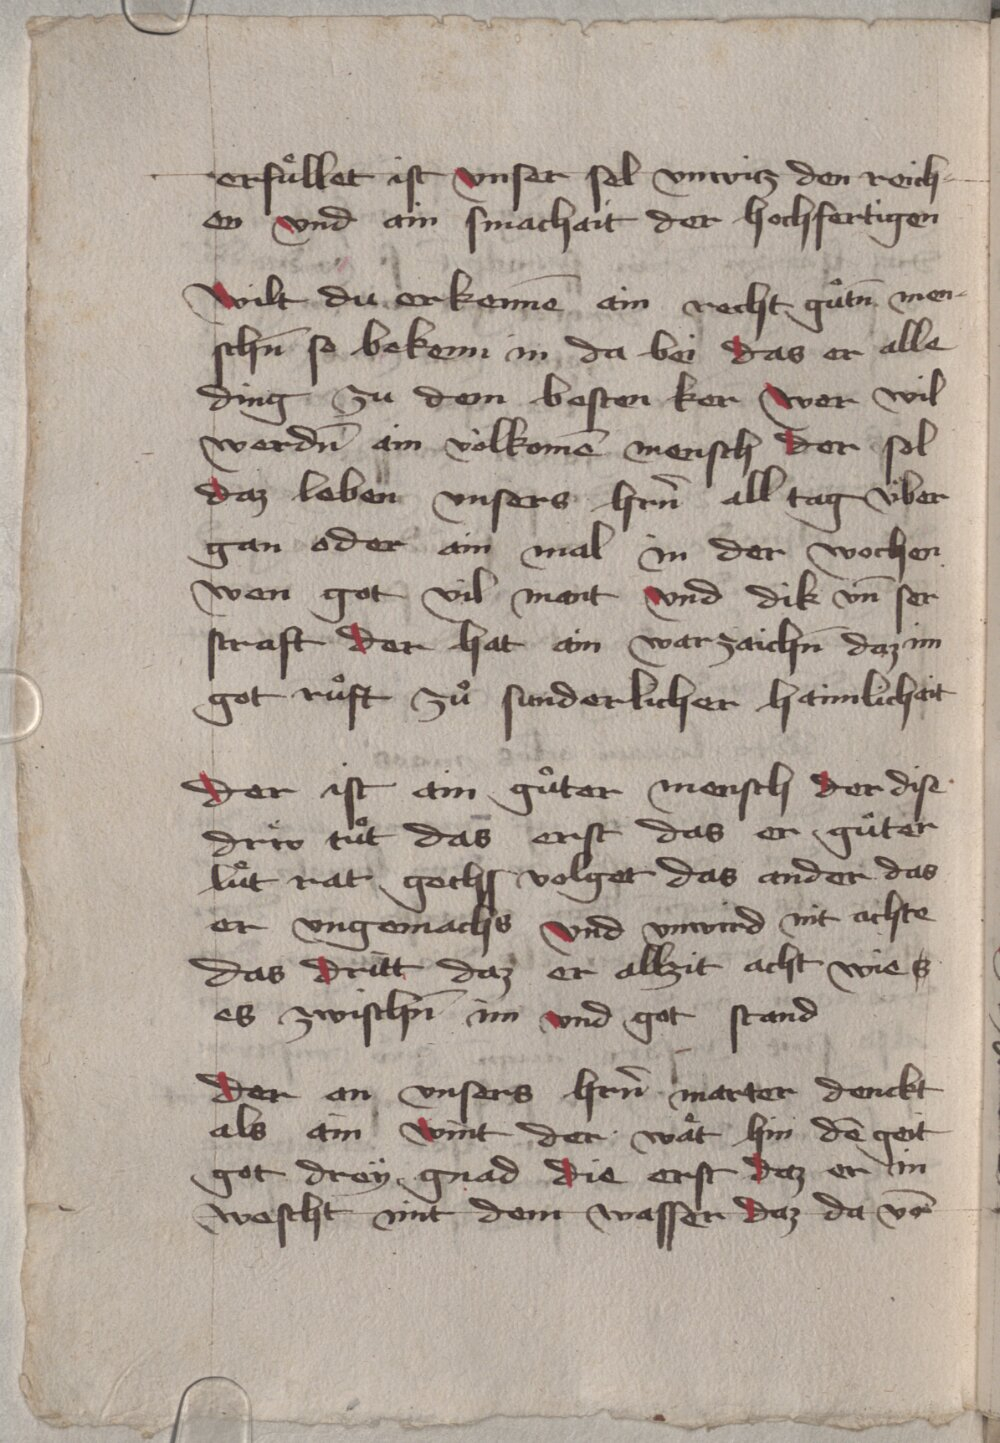 erfuͦllet ist vnser sel vnwitz den reich-
en vnd ain smachait der hochfertigen
Wilt du erkenē ain recht guͦtn̄ men-
schn̄ so bekenn in da bei das er alle
ding zu dem besten ker wer wil
werdn̄ ain volkomē mensch der sol
daz leben vnsers hrn̄ all tag vber
gan oder ain mal in der wochen
wen got vil mant vnd dik vn̄ ser
straft der hat ain warzaichn̄ daz im
got ruͦft zuͦ sunderlicher haimlichait
Der ist ain guͦter mensch der dise
driw tuͦt das erst das er guͦter
luͦt rat volget das ander das
er vngemachs vnd vnwird nit achte
das dritt daz er allzit acht wie
es zwischn̄ im vnd got stand
Der an vnsers hrn̄ marter denckt
als ain wint der waͦt hin dē geit
got dreÿ gnad die erst daz er in
wescht mit dem wasser daz da vō